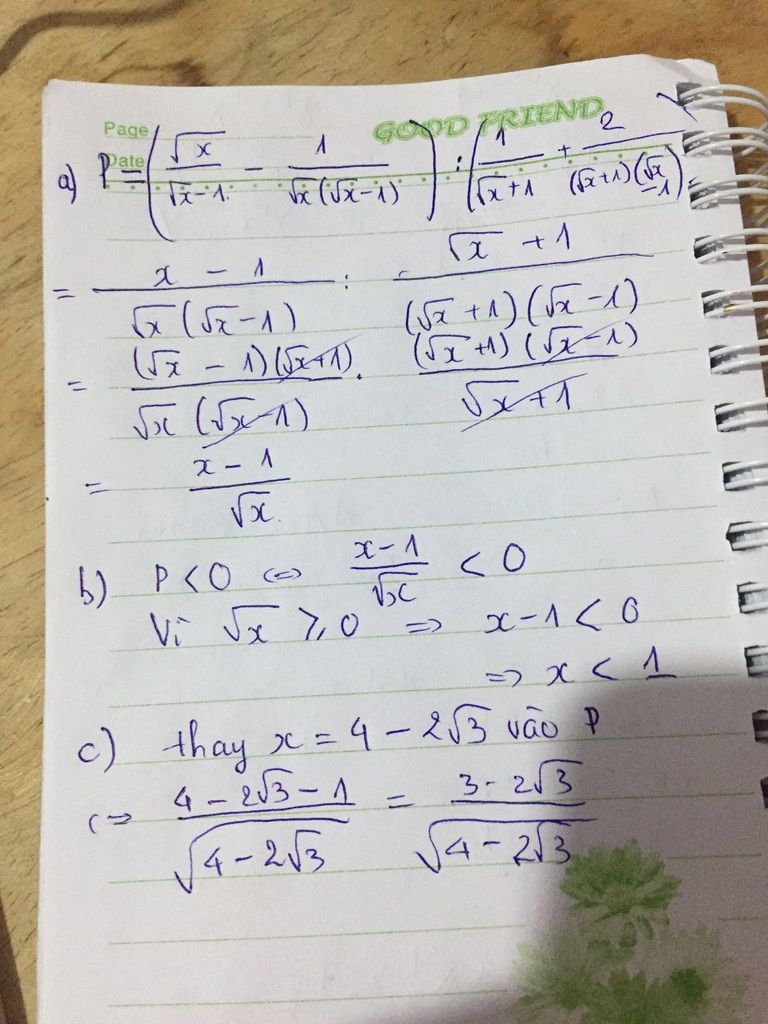 Page
GOOD FRIEND
Date
a) P = (√x / (√x - 1) - 1 / (√x(√x - 1))) : (1 / (√x + 1) + 2 / ((√x + 1)(√x - 1)))
= (x - 1) / (√x(√x - 1)) : (√x + 1) / ((√x + 1)(√x - 1))
= (√x - 1)(√x + 1) / (√x(√x - 1)) . (√x + 1)(√x - 1) / (√x + 1)
= (x - 1) / √x
b) P < 0 <=> (x - 1) / √x < 0
Vì √x ⩾ 0 => x - 1 < 0
=> x < 1
c) thay x = 4 - 2√3 vào P
<=> (4 - 2√3 - 1) / √(4 - 2√3) = (3 - 2√3) / √(4 - 2√3)